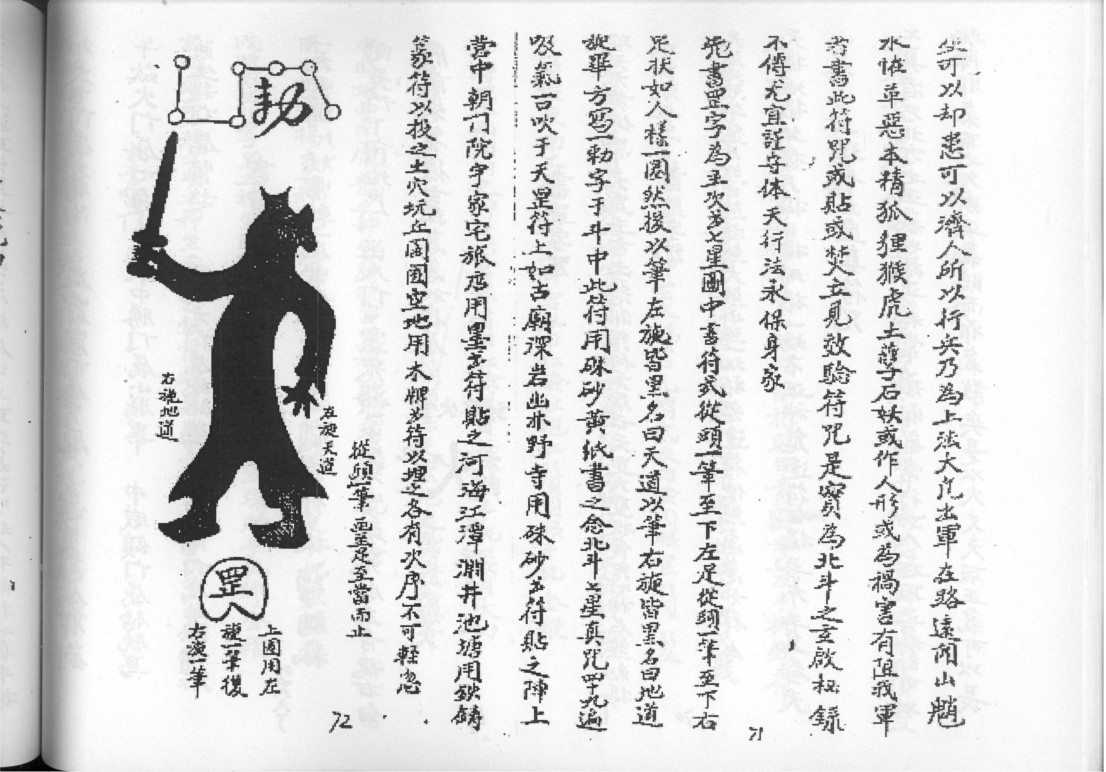 坐可以却患可以濟人所以行兵乃為上法大凢出軍在路遠閒山魈
水怪草惡木精狐狸猴虎土孽石妖或作人形或為禍害有阻我軍
書此符咒或貼或焚立見效驗符咒是寶為北斗之玄啟秘錄
不傳尤宜謹守体天行法永保身家
先書罡字為主次步七星圖中書符式從頭一筆至下左足從頭一筆至下右
足状如人樣一圈然後以筆左旋皆黑名曰天道以筆右旋皆黑名曰地道
旋畢方寫一勅字于斗中此符用硃砂黃紙書之念北斗七星真咒四十九遍
71
吸氣一口吹于天罡符上如古廟深岩幽林野寺用硃砂書符貼之陣上
營中朝门院宇家宅旅店用墨書符貼之河海江潭渊井池塘用鉄鑄
篆符以投之土穴坑丘園囿空地用木牌書符以埋之各有次序不可輕忽
從頭一筆畫足至當而止
左旋天道
勅
右旋地道
罡
上圈用左
旋一筆後
右旋一筆
72